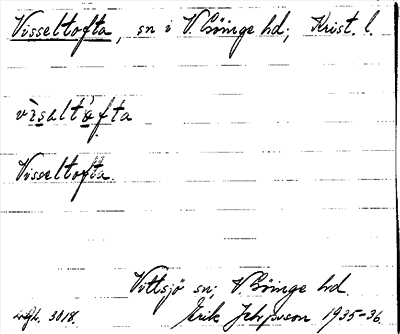 Visseltofta, sn i V. Göinge hd; Krist. l.
vìsaltáfta
Visseltofta.
Vittsjö sn; V. Göinge hd.
Erik Jeppsson 1935-36.
avgh. 3018.